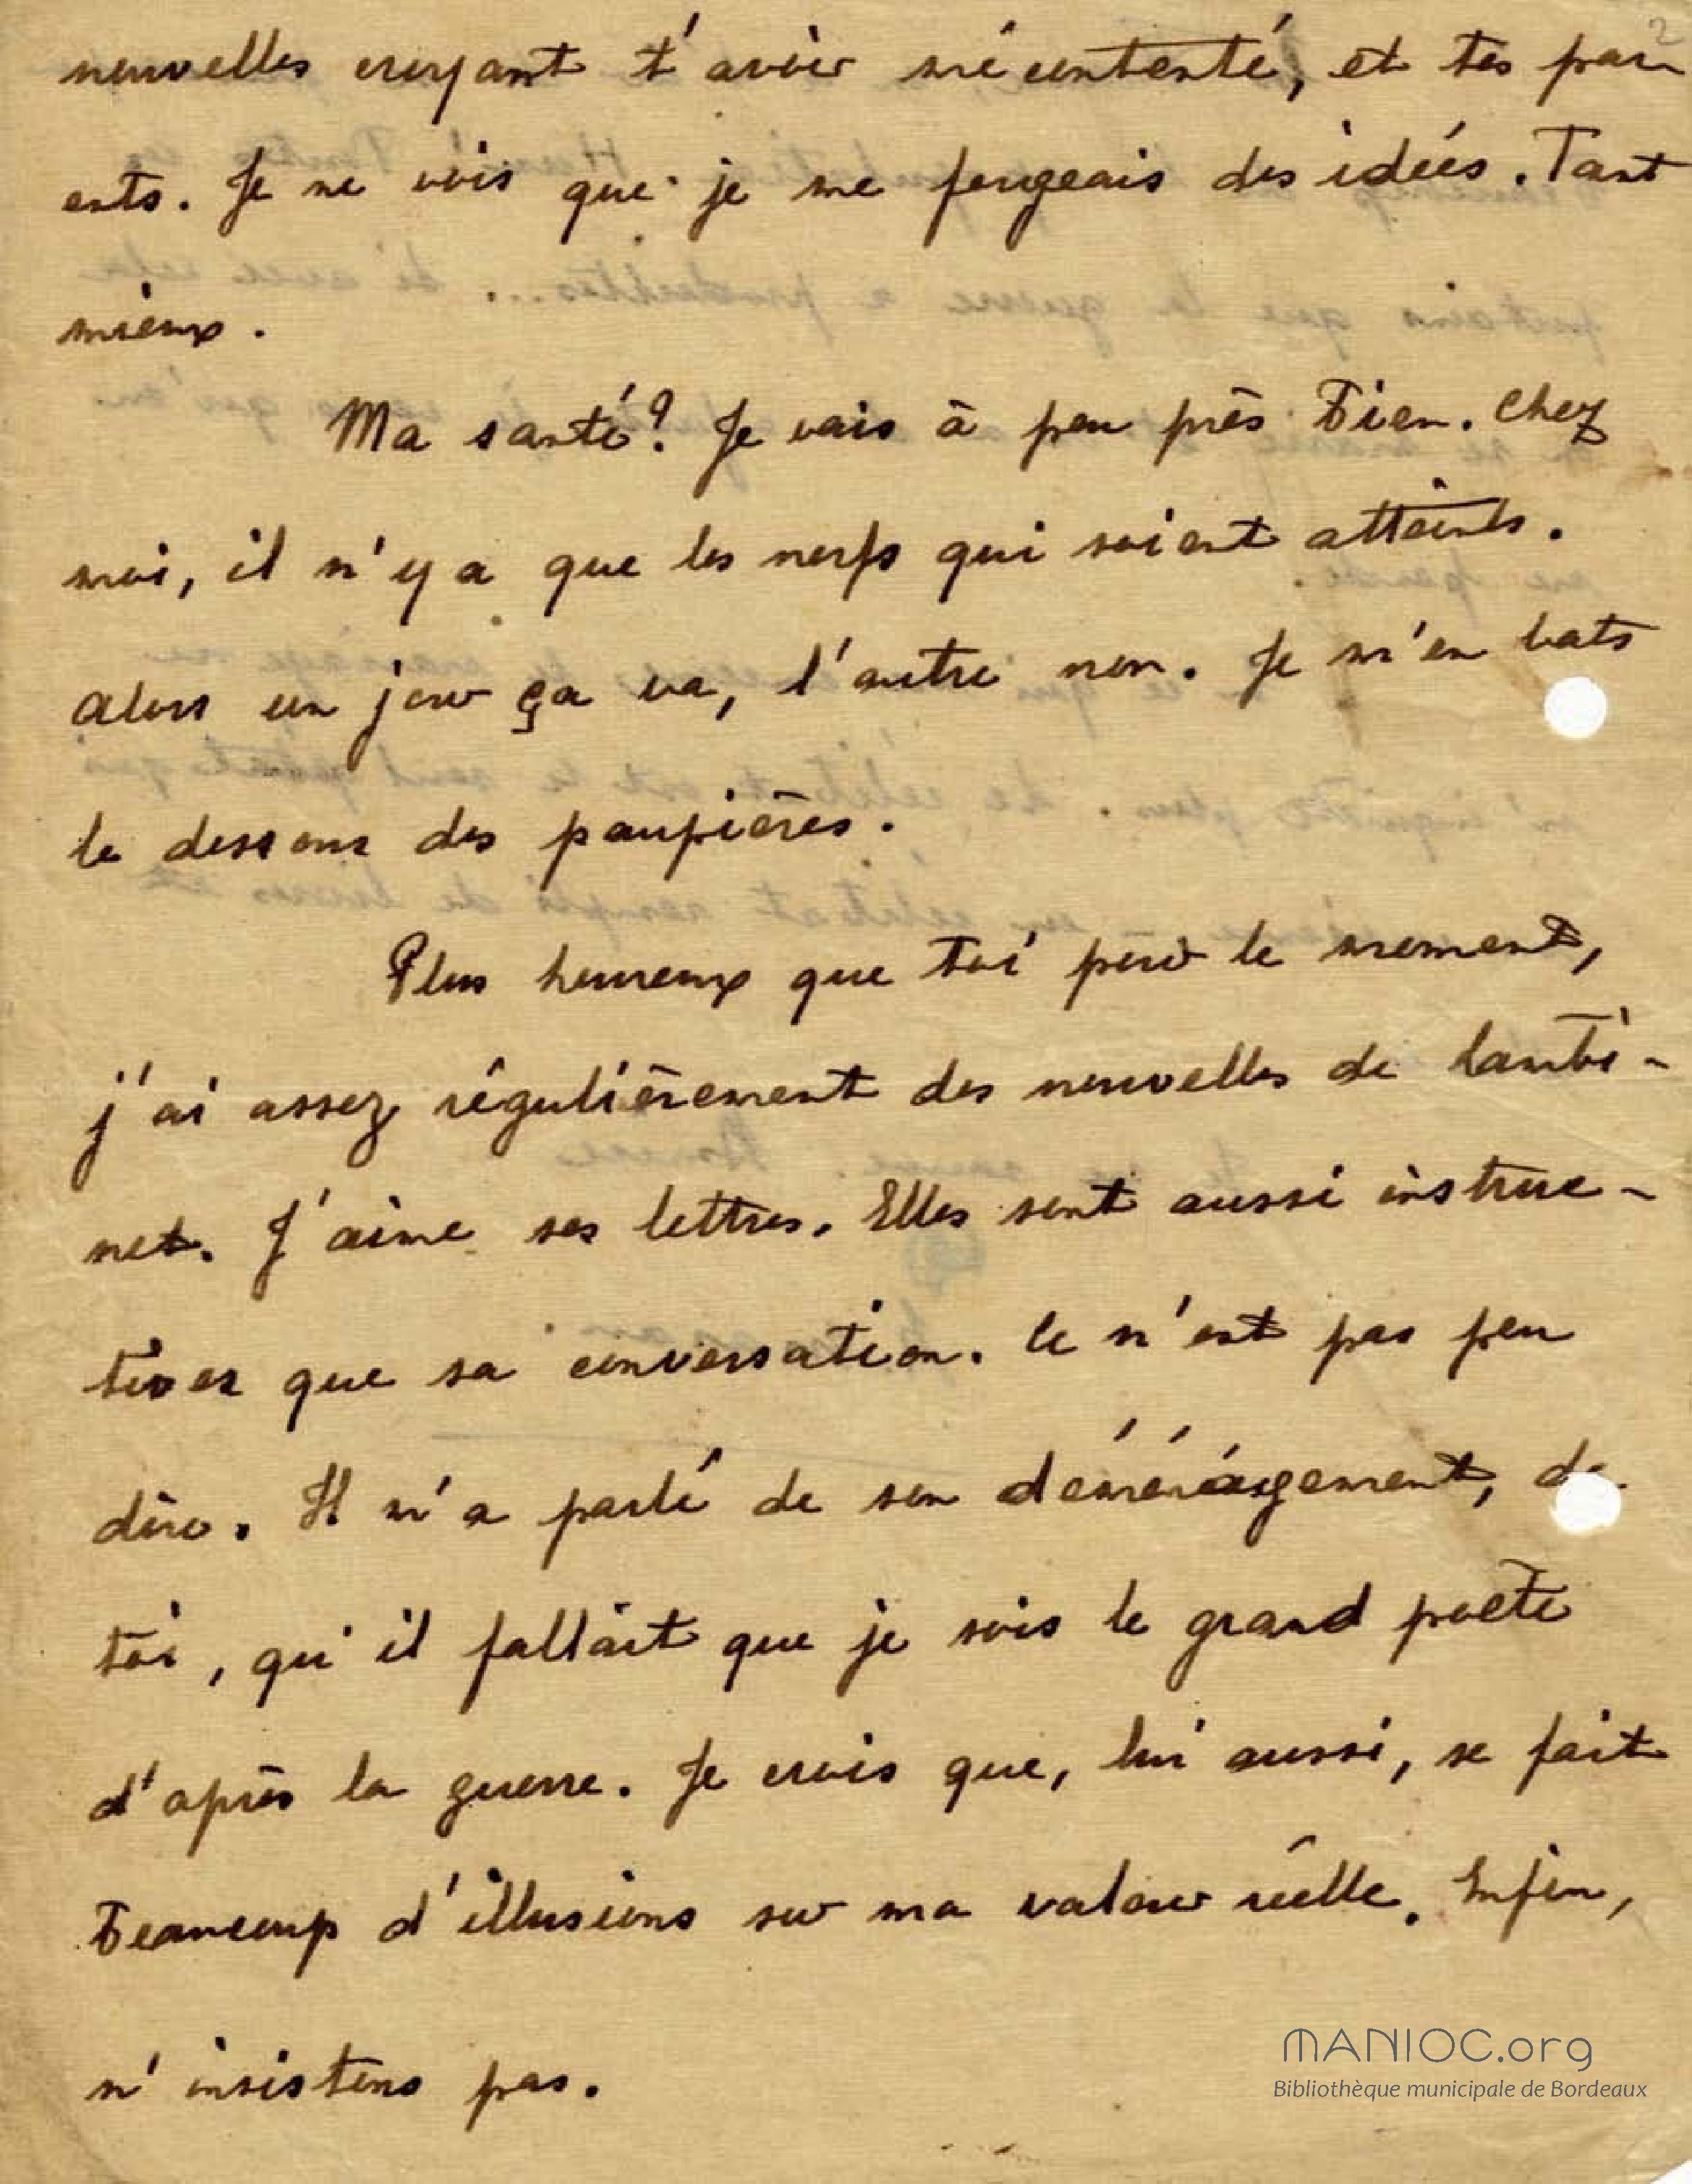 2
nouvelles croyant t'avoir mécontenté, et tes par-
ents. Je ne vois que je me forgeais des idées. Tant
mieux.
Ma santé? Je vais à peu près bien. Chez
moi, il n'y a que les nerfs qui soient atteints.
Alors un jour ça va, l'autre non. Je m'en bats
le dessous des paupières.
Plus heureux que toi pour le moment,
j'ai assez régulièrement des nouvelles de Lambi-
net. J'aime ses lettres. Elles sont aussi instruc-
tives que sa conversation. Ce n'est pas peu
dire. Il m'a parlé de son déménagement, de
toi, qu'il fallait que je sois le grand poète
d'après la guerre. Je crois que, lui aussi, se fait
beaucoup d'illusions sur ma valeur réelle. Enfin,
n'insistons pas.
MANIOC.org
Bibliothèque municipale de Bordeaux